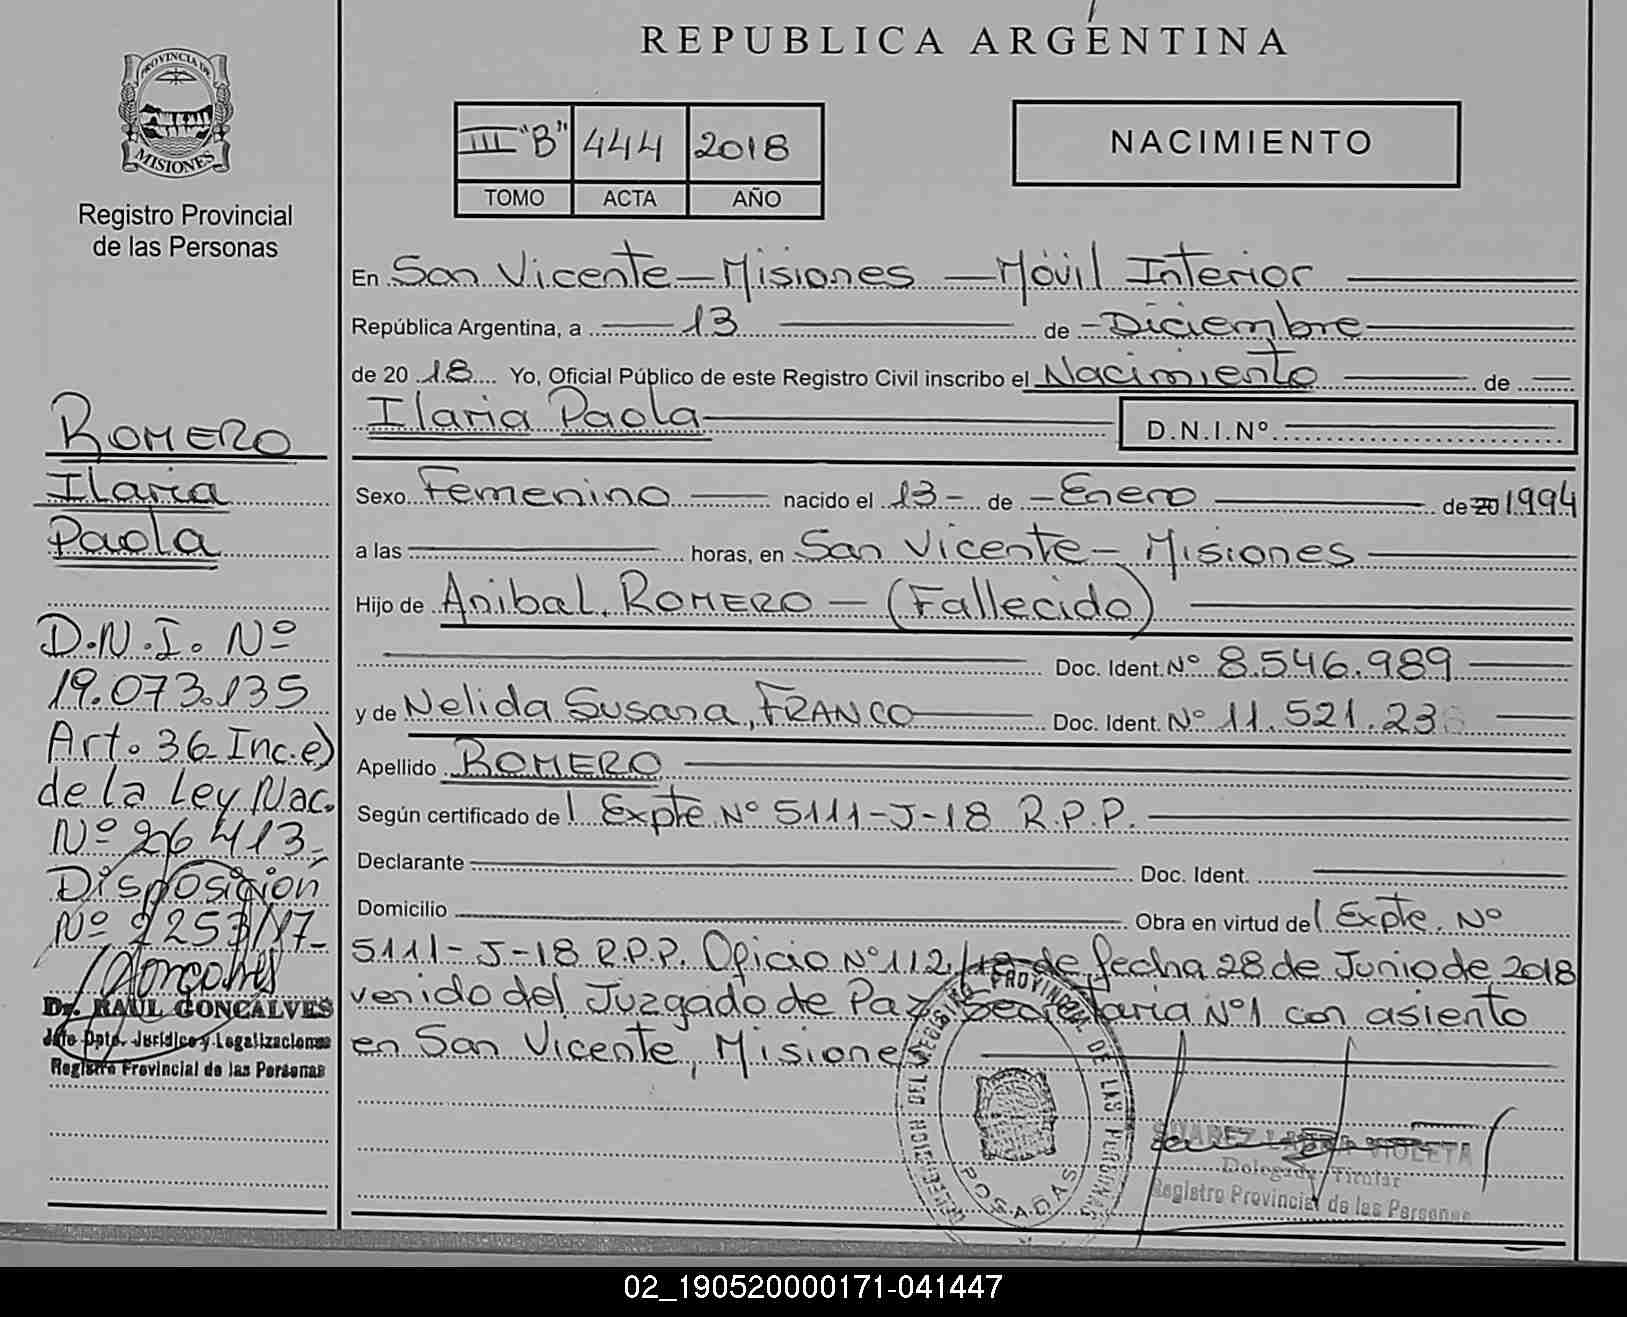 REPUBLICA ARGENTINA
PROVINCIA DE
MISIONES
Registro Provincial
de las Personas
III "B" 444 2018
TOMO ACTA AÑO
NACIMIENTO
En San Vicente - Misiones - Móvil Interior
República Argentina, a 13 de - Diciembre
de 20 18 Yo, Oficial Público de este Registro Civil inscribo el Nacimiento de
Ilaria Paola D.N.I.Nº
Sexo Femenino nacido el 13 - de - Enero de 20 1994
a las horas, en San Vicente - Misiones
Hijo de Anibal, ROMERO - (Fallecido)
Doc. Ident. Nº 8.546.989
y de Nelida Susana, FRANCO Doc. Ident. Nº 11.521.23
Apellido ROMERO
Según certificado de l Expte Nº 5111-J-18 R.P.P.
Declarante Doc. Ident.
Domicilio Obra en virtud de l Expte. Nº
5111-J-18 R.P.P. Oficio Nº 112/18 de fecha 28 de Junio de 2018
venido del Juzgado de Paz Secretaria Nº1 con asiento
en San Vicente, Misiones
ROMERO
Ilaria
Paola
D.N.I. Nº
19.073.135
Art. 36 Inc. e)
de la Ley Nac.
Nº 26 413,
Disposición
Nº 2253/17-
Dr. RAUL GONCALVES
Jefe Dpto. Jurídico y Legalizaciones
Registro Provincial de las Personas
DIRECCION DEL REGISTRO PROVINCIAL DE LAS PERSONAS
POSADAS
SUAREZ VIOLETA
Delegada Titular
Registro Provincial de las Personas
02_190520000171-041447